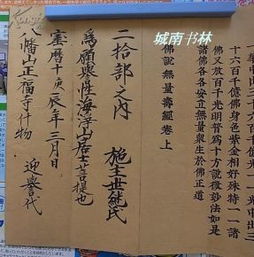 城南书林
十六百千億佛身色紫金相好殊特一一諸
佛又放百千光明普為十方說微妙法如是
諸佛各各安立無量眾生於佛正道
說無量壽經卷上
二拾部之内
施主世継氏
為願與性海浄山居士菩提也
寳曆十庚辰年三月日
八幡山正福寺什物
迎譽代